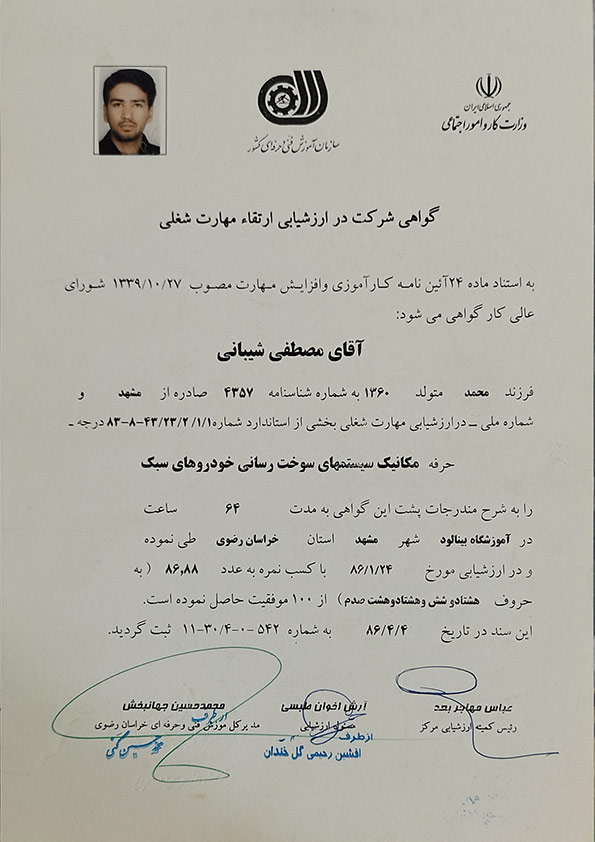 جمهوری اسلامی ایران
وزارت کار و امور اجتماعی
سازمان آموزش فنی و حرفه ای کشور
گواهی شرکت در ارزشیابی ارتقاء مهارت شغلی
به استناد ماده ۲۴ آئین نامه کارآموزی وافزایش مهارت مصوب ۱۳۳۹/۱۰/۲۷ شورای
عالی کار گواهی می شود:
آقای مصطفی شیبانی
فرزند محمد متولد ۱۳۶۰ به شماره شناسنامه ۴۳۵۷ صادره از مشهد و
شماره ملی ـ درارزشیابی مهارت شغلی بخشی از استاندارد شماره ۸۳-۸-۴۳/۲۳/۲/۱/۱ درجه ـ
حرفه مکانیک سیستمهای سوخت رسانی خودروهای سبک
را به شرح مندرجات پشت این گواهی به مدت ۶۴ ساعت
در آموزشگاه بینالود شهر مشهد استان خراسان رضوی طی نموده
و در ارزشیابی مورخ ۸۶/۱/۲۴ با کسب نمره به عدد ۸۶,۸۸ ( به
حروف هشتادو شش وهشتادوهشت صدم ) از ۱۰۰ موفقیت حاصل نموده است.
این سند در تاریخ ۸۶/۴/۴ به شماره ۵۴۲-۰-۱۱-۳۰/۴ ثبت گردید.
عباس مهاجر بعد
رئیس کمیته ارزشیابی مرکز
آرش اخوان طبسی
مسئول ارزشیابی
از طرف
افشین رحیمی گل خندان
محمدحسین جهانبخش
از طرف
مدیرکل آموزش فنی وحرفه ای خراسان رضوی